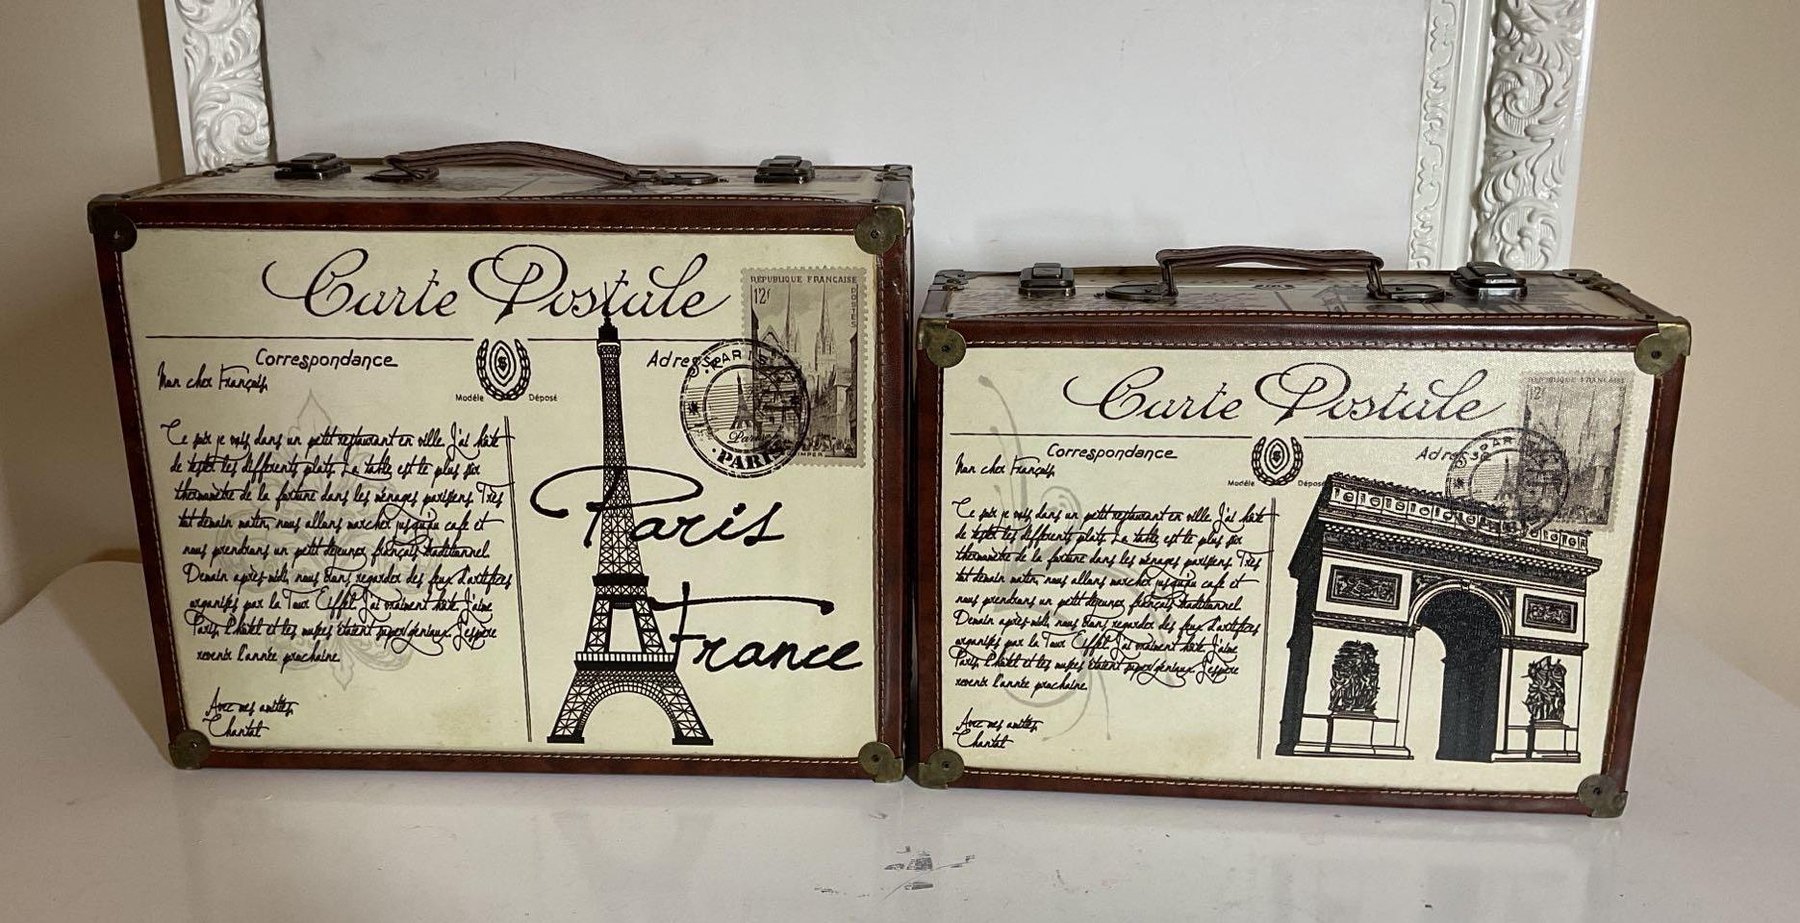 Carte Postale
RÉPUBLIQUE FRANÇAISE
12f
POSTES
Correspondance
Adresse
PARIS
Modèle Déposé
Mon cher François,
Ce soir je vais dans un petit restaurant en ville. J'ai hâte
de tester les différents plats. La table est le plus sûr
thermomètre de la fortune dans les ménages parisiens. Très
tôt demain matin, nous allons marcher jusqu'au café et
nous prendrons un petit déjeuner français traditionnel.
Demain après-midi, nous irons regarder des feux d'artifices
organisés par la Tour Eiffel. J'ai vraiment hâte. J'aime
Paris. L'hôtel et les musées étaient super géniaux. J'espère
revenir l'année prochaine.
Avec mes amitiés,
Chantal
Paris
PARIS
Paris
France
Carte Postale
RÉPUBLIQUE FRANÇAISE
12f
Correspondance
Adresse
PARIS
Modèle Déposé
Mon cher François,
Ce soir je vais dans un petit restaurant en ville. J'ai hâte
de tester les différents plats. La table est le plus sûr
thermomètre de la fortune dans les ménages parisiens. Très
tôt demain matin, nous allons marcher jusqu'au café et
nous prendrons un petit déjeuner français traditionnel.
Demain après-midi, nous irons regarder des feux d'artifices
organisés par la Tour Eiffel. J'ai vraiment hâte. J'aime
Paris. L'hôtel et les musées étaient super géniaux. J'espère
revenir l'année prochaine.
Avec mes amitiés,
Chantal